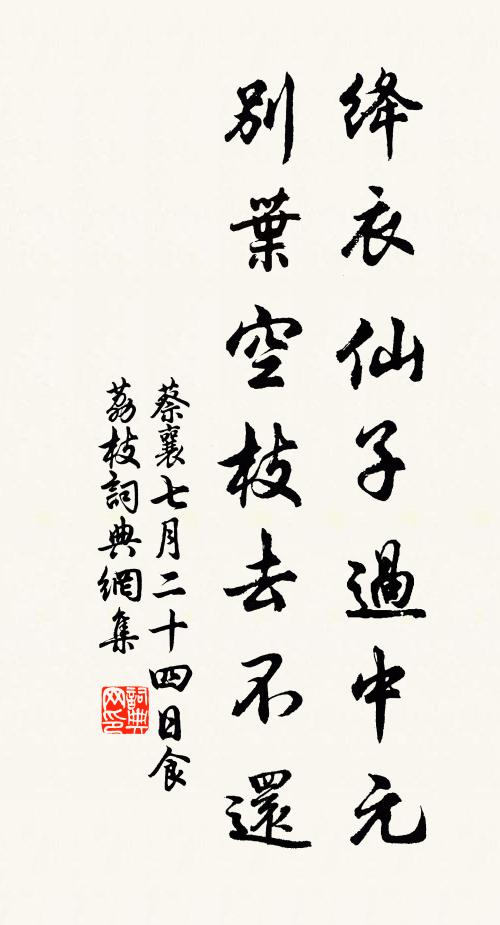 絳衣仙子過中元
別葉空枝去不還
蔡襄七月二十四日食
荔枝詞典網集
詞典網印